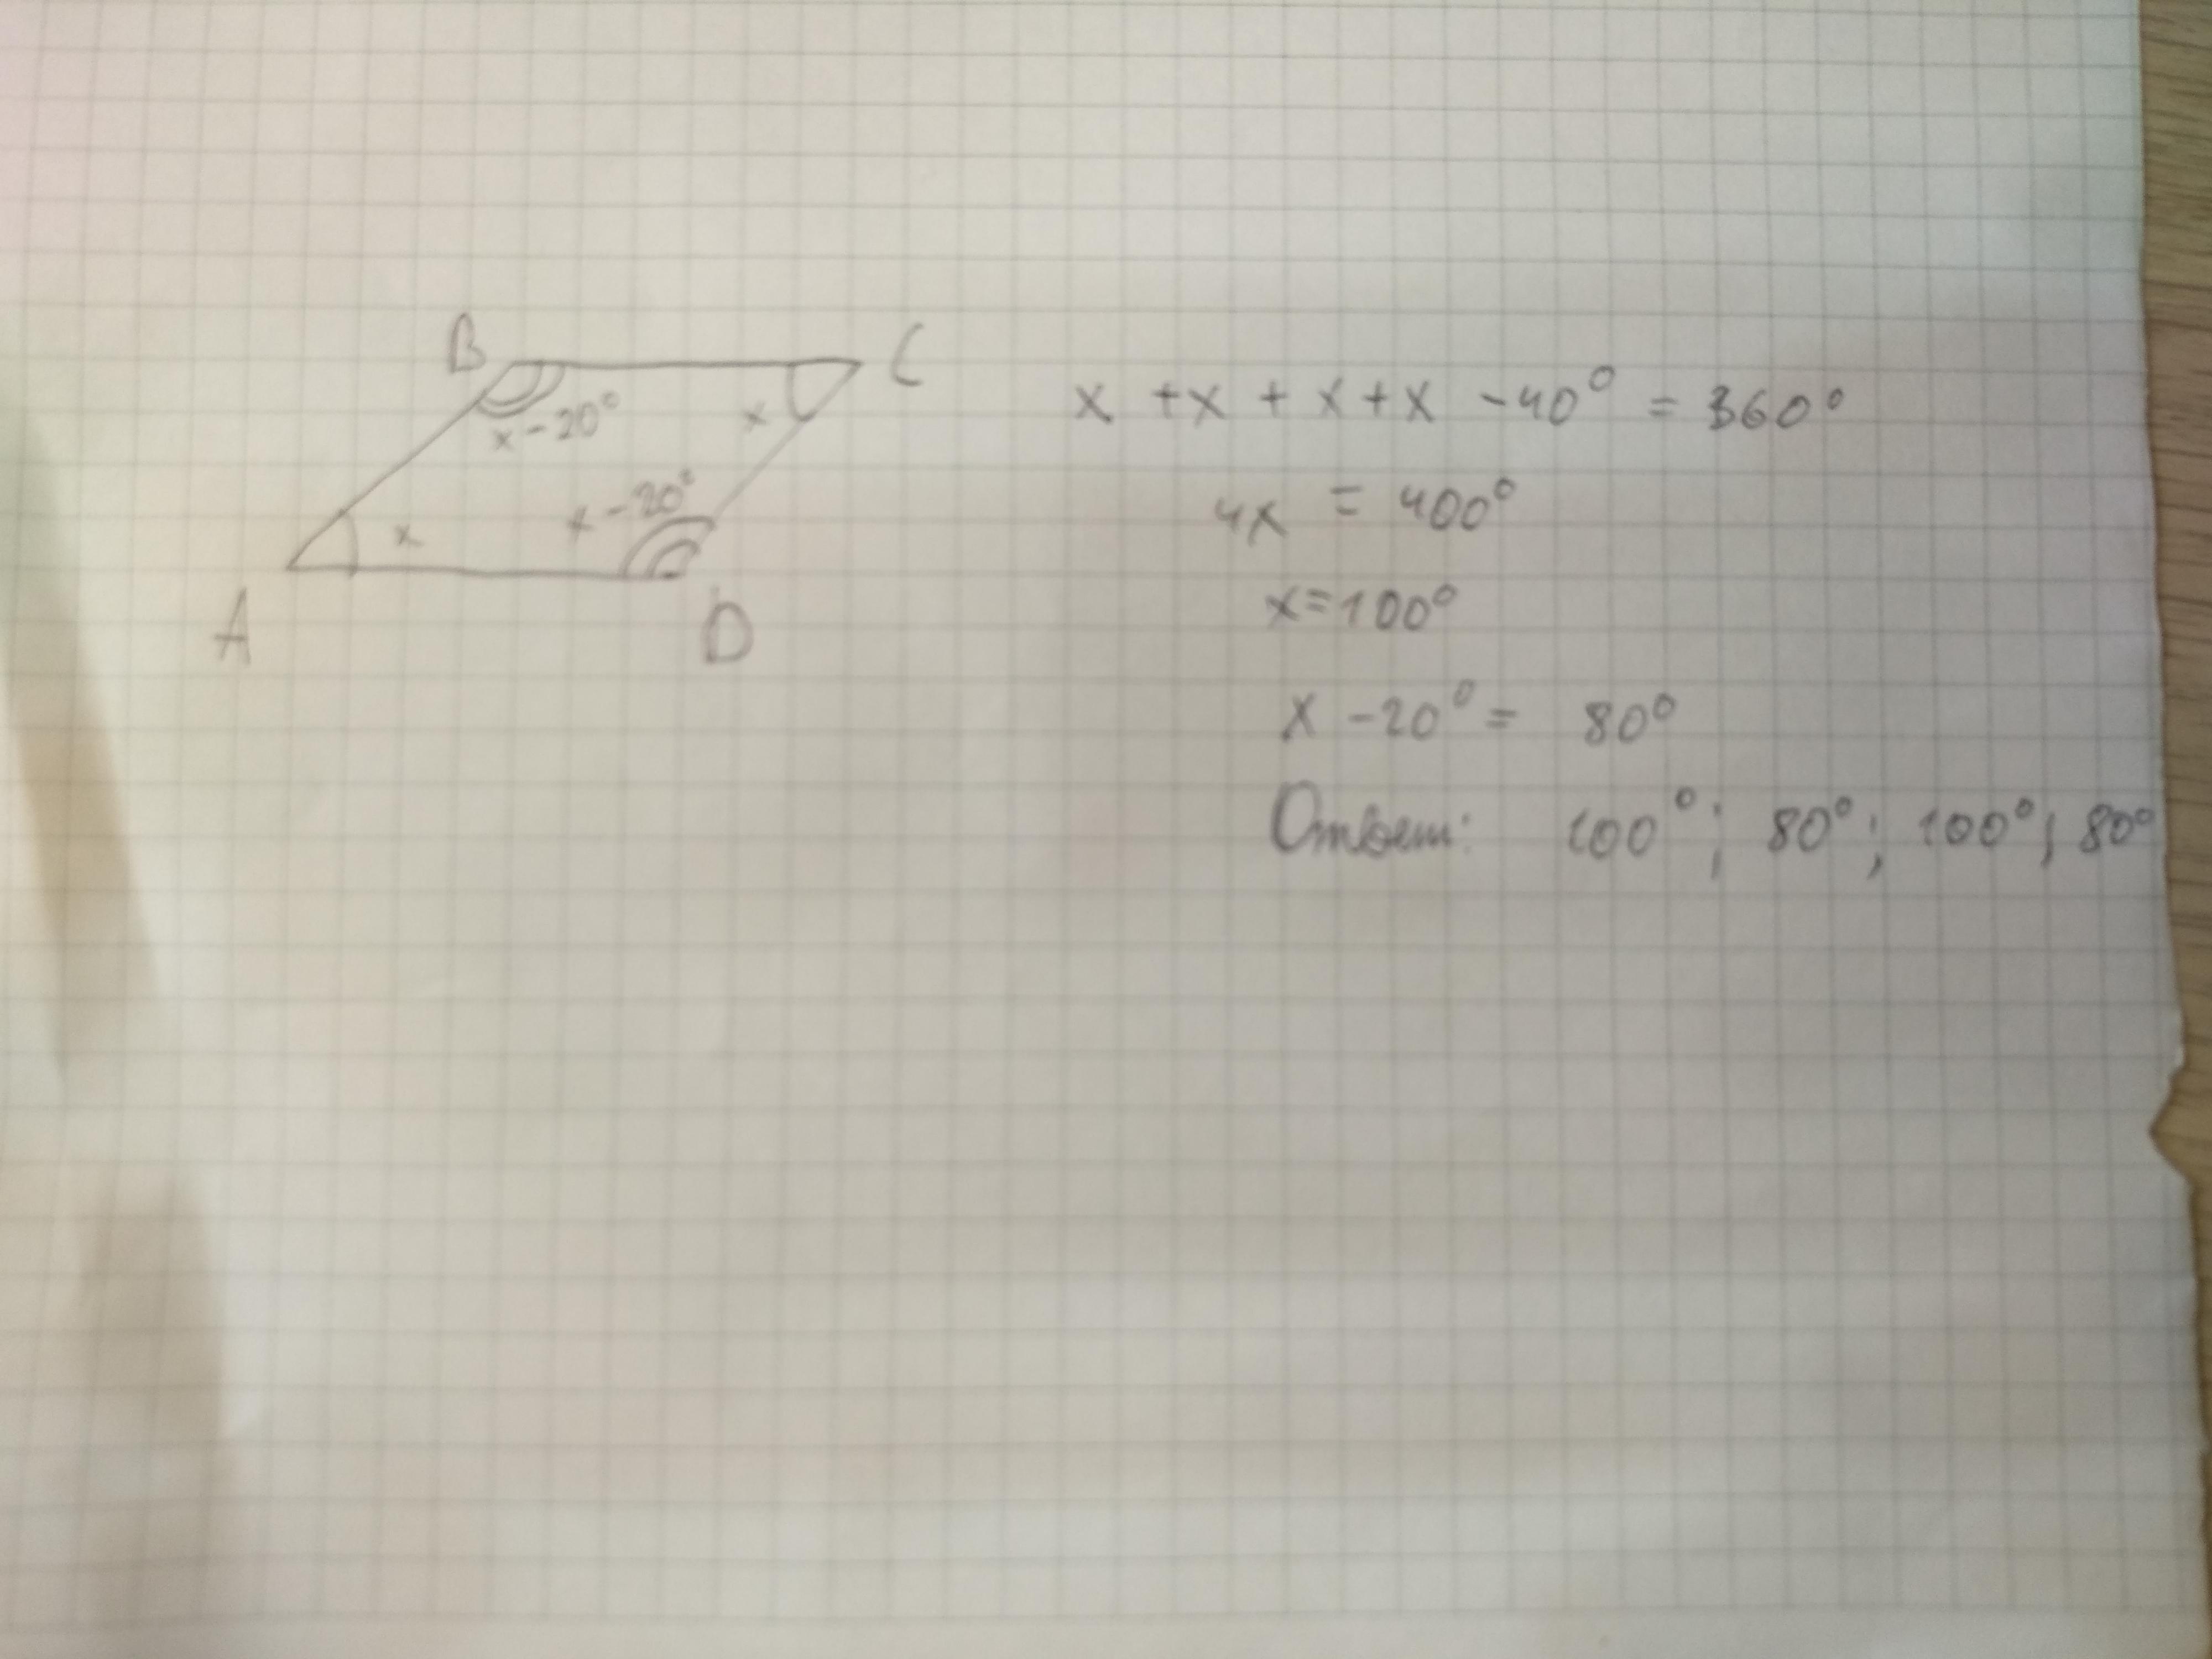 B
C
x-20°
x
x-20°
x
A
D
x + x + x + x - 40° = 360°
4x = 400°
x = 100°
x - 20° = 80°
Ответ: 100°; 80°; 100°; 80°